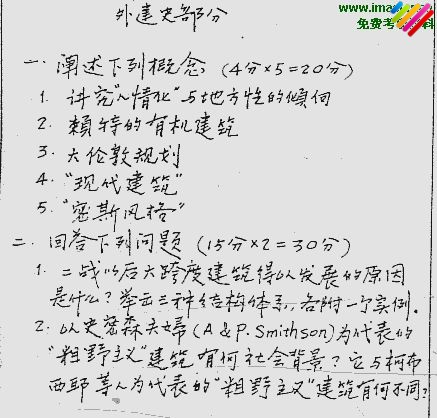 外建史部分
www.ima
免费考 料
一. 阐述下列概念 (4分×5=20分)
1. 讲究"人情化"与地方性的倾向
2. 赖特的有机建筑
3. 大伦敦规划
4. "现代建筑"
5. "密斯风格"
二. 回答下列问题 (15分×2=30分)
1. 二战以后大跨度建筑得以发展的原因
是什么? 举出三种结构体系, 各附一个实例.
2. 以史密森夫婦 (A & P. Smithson) 为代表的
"粗野主义"建筑有何社会背景? 它与柯布
西耶等人为代表的"粗野主义"建筑有何不同?